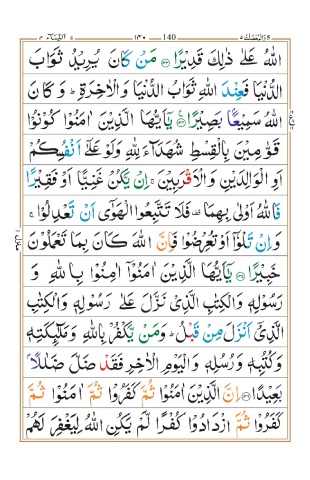 اللّٰهُ عَلٰى ذٰلِكَ قَدِيْرًا ﴿۱۳۳﴾ مَنْ كَانَ يُرِيْدُ ثَوَابَ
الدُّنْيَا فَعِنْدَ اللّٰهِ ثَوَابُ الدُّنْيَا وَالْاٰخِرَةِ ؕ وَ كَانَ
اللّٰهُ سَمِيْعًۢا بَصِيْرًا ﴿۱۳۴﴾ يٰۤاَيُّهَا الَّذِيْنَ اٰمَنُوْا كُوْنُوْا
قَوّٰمِيْنَ بِالْقِسْطِ شُهَدَآءَ لِلّٰهِ وَلَوْ عَلٰۤى اَنْفُسِكُمْ
اَوِ الْوَالِدَيْنِ وَالْاَقْرَبِيْنَ ۚ اِنْ يَّكُنْ غَنِيًّا اَوْ فَقِيْرًا
فَاللّٰهُ اَوْلٰى بِهِمَا ۫ فَلَا تَتَّبِعُوا الْهَوٰۤى اَنْ تَعْدِلُوْا ۚ
وَ اِنْ تَلْوٗۤا اَوْ تُعْرِضُوْا فَاِنَّ اللّٰهَ كَانَ بِمَا تَعْمَلُوْنَ
خَبِيْرًا ﴿۱۳۵﴾ يٰۤاَيُّهَا الَّذِيْنَ اٰمَنُوْۤا اٰمِنُوْا بِاللّٰهِ وَ
رَسُوْلِهٖ وَالْكِتٰبِ الَّذِيْ نَزَّلَ عَلٰى رَسُوْلِهٖ وَالْكِتٰبِ
الَّذِيْۤ اَنْزَلَ مِنْ قَبْلُ ؕ وَمَنْ يَّكْفُرْ بِاللّٰهِ وَمَلٰٓئِكَتِهٖ
وَكُتُبِهٖ وَرُسُلِهٖ وَالْيَوْمِ الْاٰخِرِ فَقَدْ ضَلَّ ضَلٰلًاۢ
بَعِيْدًا ﴿۱۳۶﴾ اِنَّ الَّذِيْنَ اٰمَنُوْا ثُمَّ كَفَرُوْا ثُمَّ اٰمَنُوْا ثُمَّ
كَفَرُوْا ثُمَّ ازْدَادُوْا كُفْرًا لَّمْ يَكُنِ اللّٰهُ لِيَغْفِرَ لَهُمْ